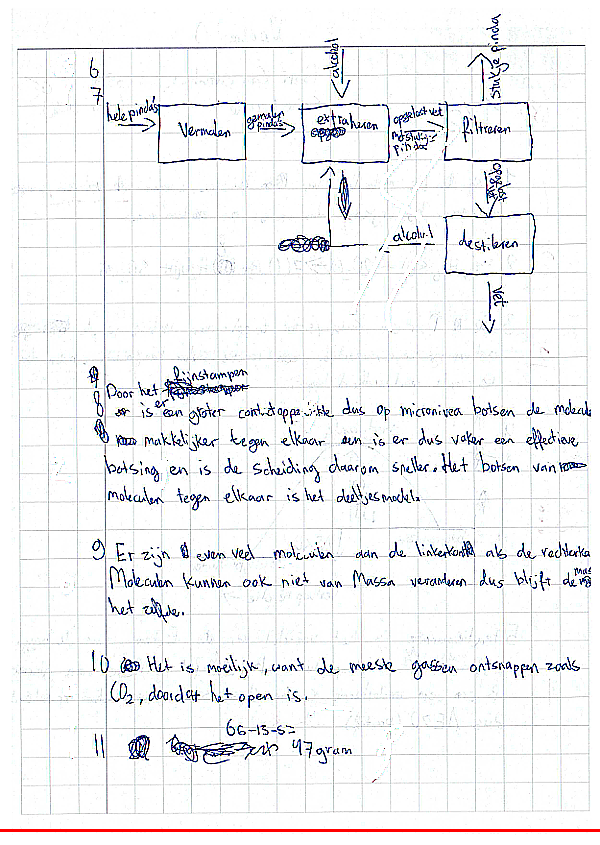 6
7
hele pinda's
Vermalen
gemalen pinda's
alcohol
extraheren
opgelost vet
pinda
filtreren
stukje pinda
opgelost vet
alcohol
destileren
vet
fijnstampen
8 Door het
er is er een groter contactoppervlakte dus op microniveau botsen de molecule
makkelijker tegen elkaar en is er dus vaker een effectieve
botsing en is de scheiding daarom sneller. Het botsen van
moleculen tegen elkaar is het deeltjesmodel.
9 Er zijn evenveel moleculen aan de linkerkant als de rechterka
Moleculen kunnen ook niet van Massa veranderen dus blijft de
het zelfde.
10 Het is moeilijk, want de meeste gassen ontsnappen zoals
CO2, doordat het open is.
11 66-13-6=
47 gram